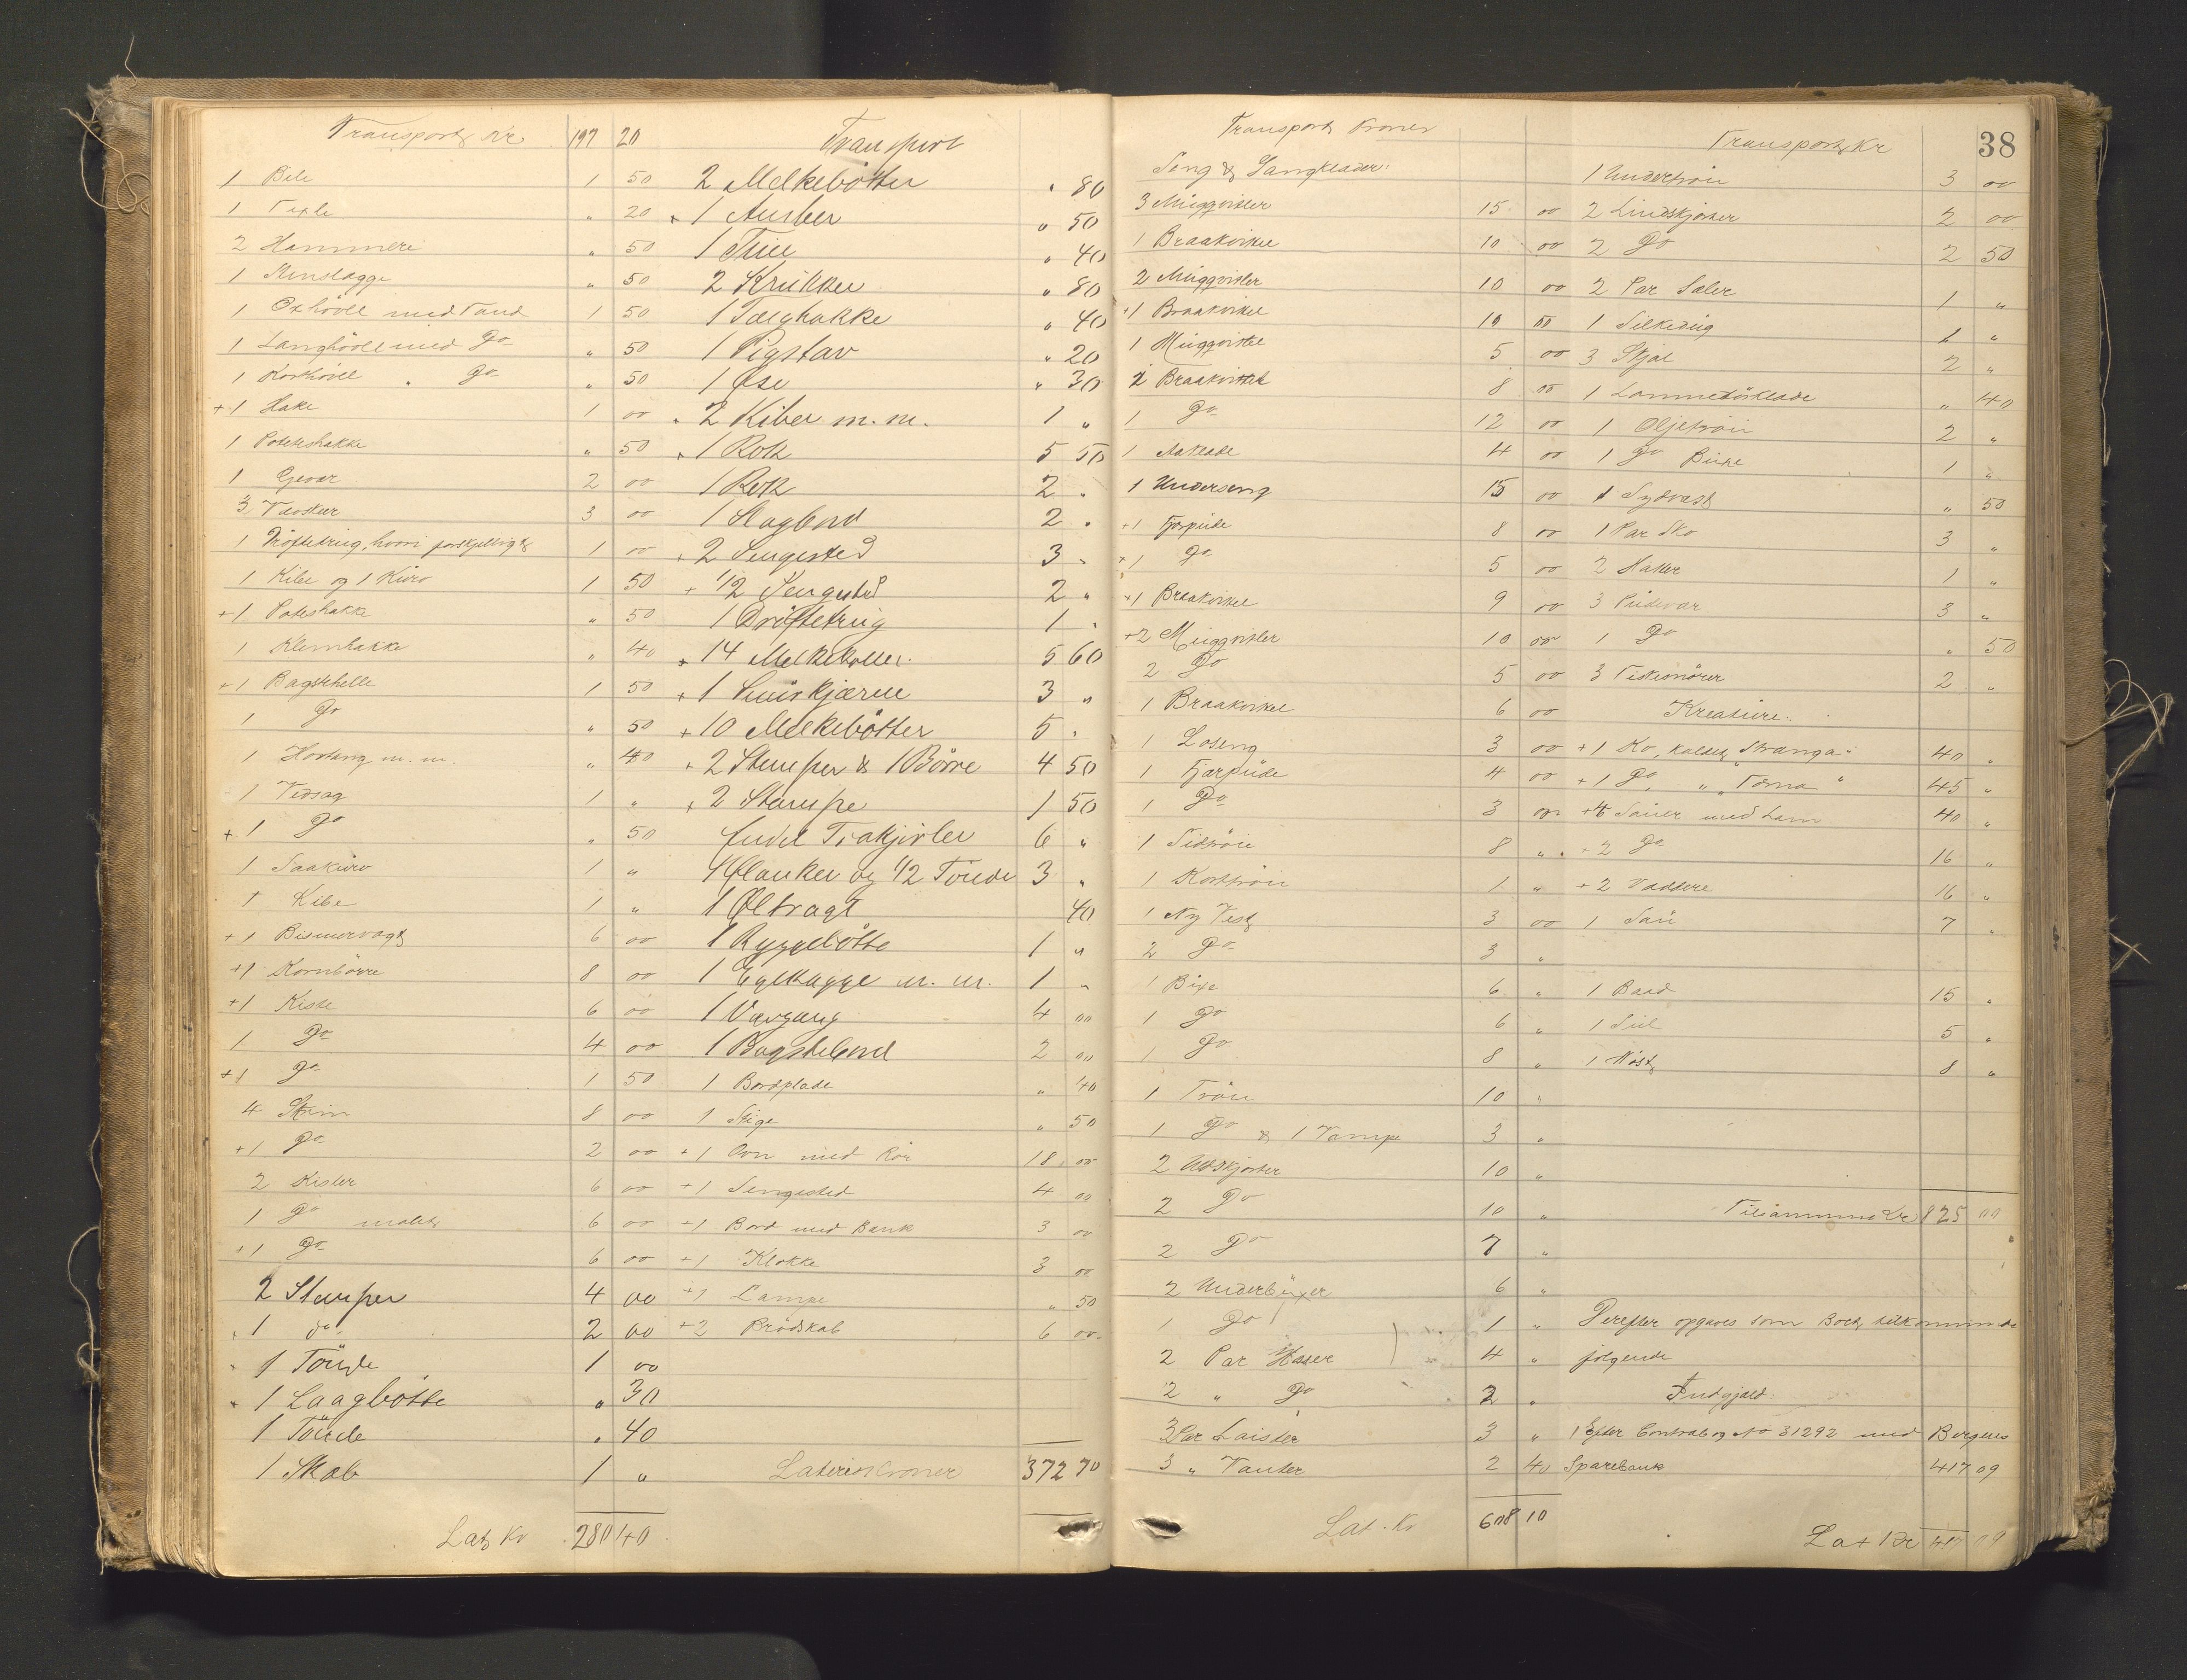 Transport Kr. 197 20
1 Bile 1 50
1 Texle " 20
2 Hammere " 50
1 " 50
1 Oxhövl med Tand 1 50
1 Langhövl med Do " 50
1 Korthövl " Do " 50
+ 1 Hake 1 00
1 Poteteshakke " 50
1 Gevær 2 00
3 Vævskeer 3 00
1 Dröftetrug, hvori forskjelligt 1 00
1 Kibe og 1 Kurv 1 50
+ 1 Poteshakke " 50
1 Klemhakke " 40
+ 1 Bagstehelle 1 50
1 Do " 50
1 m. m. " 40
1 Vedsag 1 "
+ 1 Do " 50
1 Saakurv 1 "
1 Kibe 1 "
+ 1 Bismervægt 6 00
+ 1 Kornbörre 8 00
+ 1 Kiste 6 00
1 Do 4 00
+ 1 Do 1 50
4 Skrin 8 00
+ 1 Do 2 00
2 Kister 6 00
1 Do malet 6 00
+ 1 Do 6 00
2 Stamper 4 00
+ 1 do 2 00
+ 1 Tönde 1 00
+ 1 Laagbötte " 30
1 Tönde " 40
1 Skab 1 "
Lat. Kr. 280 40
Transport
2 Melkebötter " 80
+ 1 Amber " 50
1 " 40
2 Krukker " 80
1 Tælghakke " 40
1 Pigstav " 20
1 Öse " 30
+ 2 Kiber m. m. 1 "
+ 1 Rok 5 50
1 Rok 2 "
1 Slagbord 2 "
+ 2 Sengested 3 "
+ 1/2 Sengested 2 "
1 Dröftetrug 1 "
+ 14 Melkekoller 5 60
+ 1 Smörkjærne 3 "
+ 10 Melkebötter 5 "
+ 2 Stamper & 1 Börre 4 50
+ 2 Stampe 1 50
Endel Trækjörler 6 "
4 Planker og 1/2 Tönde 3 "
1 Öltragt 40
1 Ryggebötte 1 "
1 m. m. 1 "
1 Vævgang 4 00
1 Bagstebord 2 00
1 Bordplade " 40
1 Stige " 50
+ 1 Ovn med Rör 18 00
+ 1 Sengested 4 00
+ 1 Bord med Bænk 3 00
+ 1 Klokke 3 00
+ 1 Lampe " 50
+ 2 Brödskab 6 00
Lateris Kroner 372 70
Transport Kroner
Seng & Gangklæder:
3 Muggvitler 15 00
1 Braakvitel 10 00
2 Muggvitler 10 00
+ 1 Braakvitel 10 00
1 Muggvitel 5 00
2 Braakvitel 8 00
1 Do 12 00
1 Aaklæde 4 00
1 Underseng 15 00
+ 1 Fjærpude 8 00
+ 1 Do 5 00
+ 1 Braakvitel 9 00
+ 2 Muggvitler 10 00
2 Do 5 00
1 Braakvitel 6 00
1 Loseng 3 00
1 Fjærpude 4 00
1 Do 3 00
1 Sidtröie 8 "
1 Korttröie 1 "
1 Ny Vest 3 00
2 Do 3 "
1 Buxe 6 "
1 Do 6 "
1 Do 8 "
1 Tröie 10 "
1 Do & 1 Vampe 3 "
2 Uldskjorter 10 "
2 Do 10 "
2 Do 7 "
2 Underbuxer 6 "
1 Do 1 "
2 Par Hoser 4 "
2 " Do 2 "
3 Par Laister 3 "
3 " Vanter 2 40
Lat. Kr. 608 10
38
Transport Kr.
1 Undertröie 3 00
2 Lindskjorter 2 00
2 Do 2 50
2 Par Saler 1 "
1 Silkedug 1 "
3 Skjal 2 "
1 Lommetörklæde " 40
1 Oljetröie 2 "
1 Do Buxe 1 "
1 Sydvest " 50
1 Par Sko 3 "
2 Hatter 1 "
3 Pudevar 3 "
1 Do " 50
3 Fiskesnörer 2 "
Kreature:
+ 1 Ko, kaldet "Stranga" 40 "
+ 1 Do, " "Torna" 45 "
+ 4 Sauer med Lam 40 "
+ 2 Do 16 "
+ 2 Væddere 16 "
1 Sau 7 "
1 Baad 15 "
1 Seil 5 "
1 Nöst 8 "
Tilsammen Kr 825 00
Derefter opgaves som Boet tilkommende
følgende
Indgjæld:
1 Efter Contrabog No 31292 med Bergens
Sparebank 417 09
Lat Kr 417 09